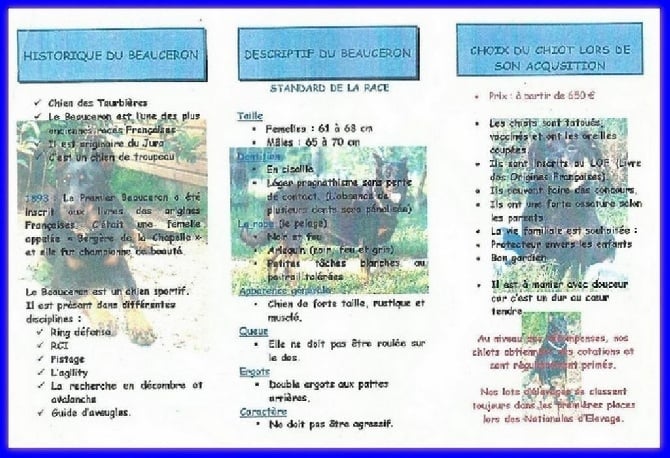 HISTORIQUE DU BEAUCERON
Chien des Tourbières
Le Beauceron est l'une des plus
anciennes races Françaises
Il est originaire du Jura
C'est un chien de troupeau
1893 : Le Premier Beauceron a été
inscrit aux livres des origines
Françaises. C'était une femelle
appelée « Bergère de la Chapelle »
et elle fur championne de beauté.
Le Beauceron est un chien sportif.
Il est présent dans différentes
disciplines :
Ring défense
RCI
Pistage
L'agility
La recherche en décombre et
avalanche
Guide d'aveugles.
DESCRIPTIF DU BEAUCERON
STANDARD DE LA RACE
Taille
Femelles : 61 à 68 cm
Mâles : 65 à 70 cm
Dentition
En cisaille
Léger prognathisme sans perte
de contact. (L'absence de
plusieurs dents sera pénalisée)
La robe (le pelage)
Noir et feu
Arlequin (noir, feu et gris)
Petites tâches blanches au
poitrail tolérées
Apparence générale
Chien de forte taille, rustique et
musclé.
Queue
Elle ne doit pas être roulée sur
le dos.
Ergots
Double ergots aux pattes
arrières.
Caractère
Ne doit pas être agressif.
CHOIX DU CHIOT LORS DE
SON ACQUSITION
Prix : à partir de 650 €
Les chiots sont tatoués,
vaccinés et ont les oreilles
coupées.
Ils sont inscrits au LOF (Livre
des Origines Françaises).
Ils peuvent faire des concours.
Ils ont une forte ossature selon
les parents
La vie familiale est souhaitée :
Protecteur envers les enfants
Bon gardien
Il est à manier avec douceur
car c'est un dur au cœur
tendre
Au niveau des récompenses, nos
chiots obtiennent des cotations et
sont régulièrement primés.
Nos lots d'élevages se classent
toujours dans les premières places
lors des Nationales d'Elevage.